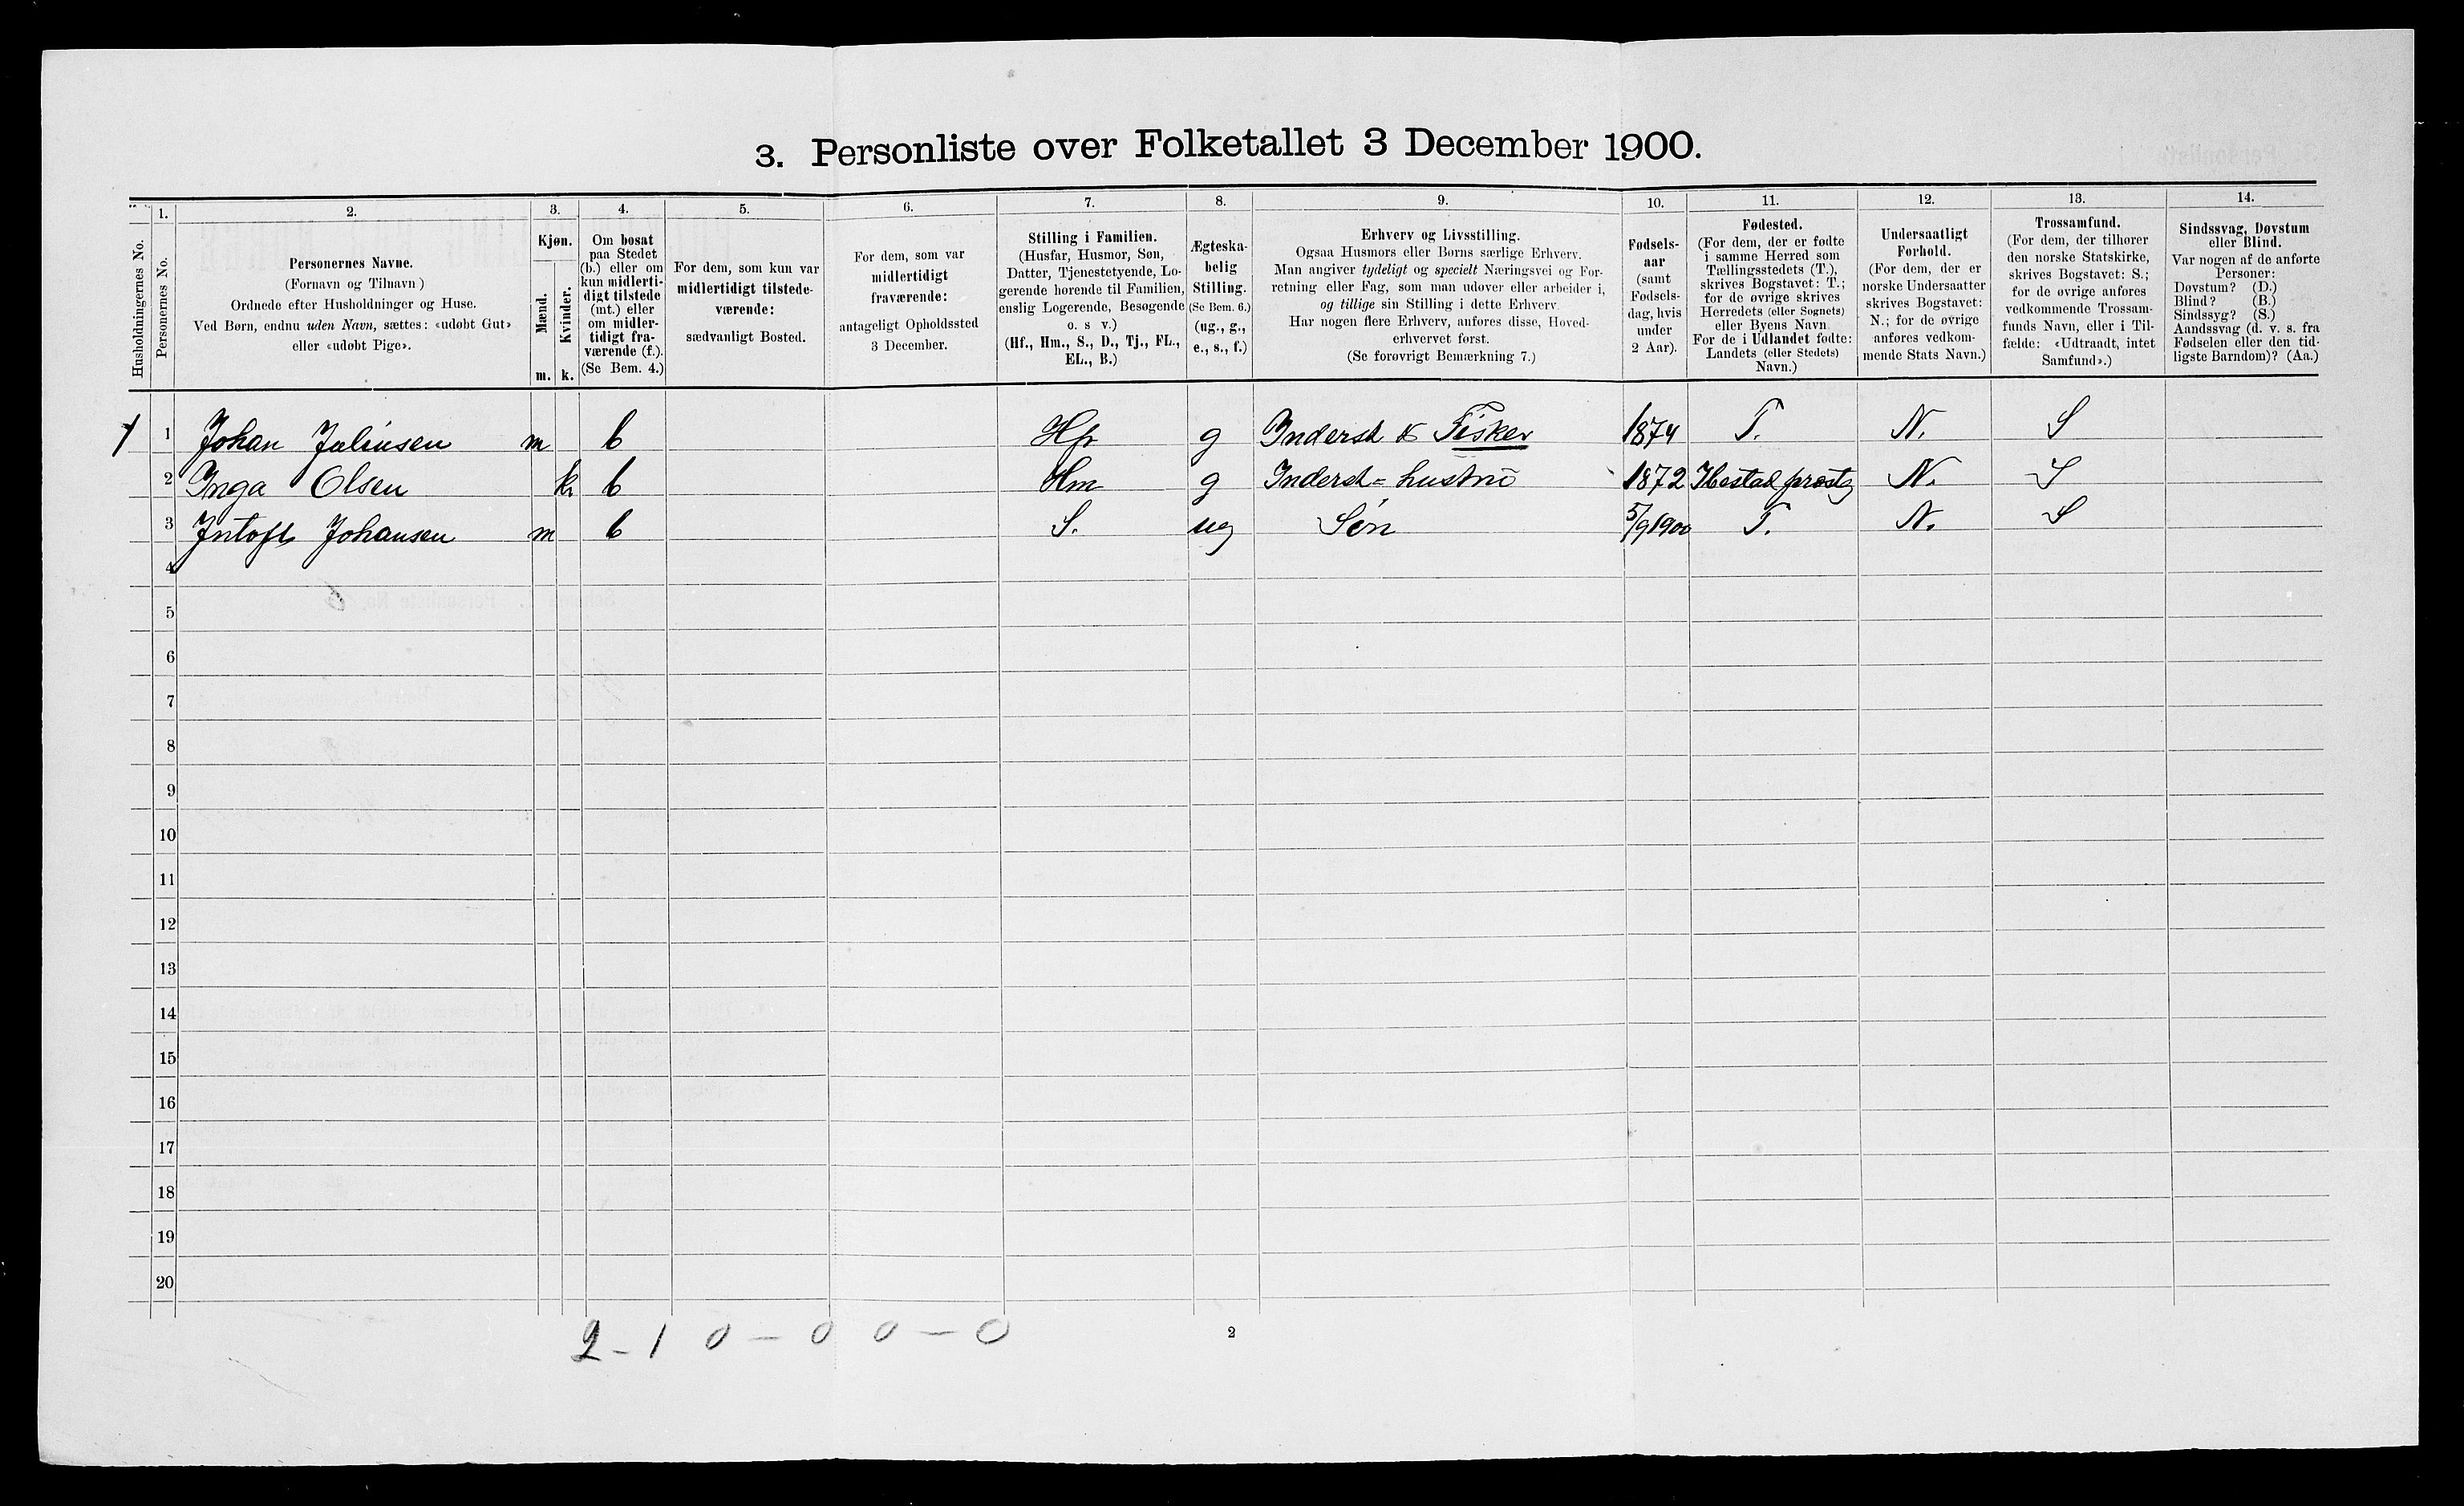 3. Personliste over Folketallet 3 December 1900.
Husholdningernes No.
1.
Personernes No.
2.
Personernes Navne.
(Fornavn og Tilnavn)
Ordnede efter Husholdninger og Huse.
Ved Børn, endnu uden Navn, sættes: «udøbt Gut»
eller «udøbt Pige».
3.
Kjøn.
Mænd.
Kvinder.
m.
k.
4.
Om bosat
paa Stedet
(b.) eller om
kun midlerti-
digt tilstede
(mt.) eller
om midler-
tidigt fra-
værende (f.).
(Se Bem. 4.)
5.
For dem, som kun var
midlertidigt tilstede-
værende:
sædvanligt Bosted.
6.
For dem, som var
midlertidigt
fraværende:
antageligt Opholdssted
3 December.
7.
Stilling i Familien.
(Husfar, Husmor, Søn,
Datter, Tjenestetyende, Lo-
gerende hørende til Familien,
enslig Logerende, Besøgende
o. s v.)
(Hf., Hm., S., D., Tj., FL.,
EL., B.)
8.
Ægteska-
belig
Stilling.
(Se Bem. 6.)
(ug., g.,
e., s., f.)
9.
Erhverv og Livsstilling.
Ogsaa Husmors eller Børns særlige Erhverv.
Man angiver tydeligt og specielt Næringsvei og For-
retning eller Fag, som man udøver eller arbeider i,
og tillige sin Stilling i dette Erhverv.
Har nogen flere Erhverv, anføres disse, Hoved-
erhvervet først.
(Se forøvrigt Bemærkning 7.)
10.
Fødsels-
aar
(samt
Fødsels-
dag, hvis
under
2 Aar).
11.
Fødested.
(For dem, der er fødte
i samme Herred som
Tællingsstedets (T.),
skrives Bogstavet: T.;
for de øvrige skrives
Herredets (eller Sognets)
eller Byens Navn
For de i Udlandet fødte:
Landets (eller Stedets)
Navn.)
12.
Undersaatligt
Forhold.
(For dem, der er
norske Undersaatter
skrives Bogstavet:
N.; for de øvrige
anføres vedkom-
mende Stats Navn.)
13.
Trossamfund.
(For dem, der tilhører
den norske Statskirke,
skrives Bogstavet: S.;
for de øvrige anføres
vedkommende Trossam-
funds Navn, eller i Til-
fælde: «Udtraadt, intet
Samfund».)
14.
Sindssvag, Døvstum
eller Blind.
Var nogen af de anførte
Personer:
Døvstum? (D.)
Blind? (B.)
Sindssyg? (S.)
Aandssvag (d. v. s. fra
Fødselen eller den tid-
ligste Barndom)? (Aa.)
1 1 Johan Julinsen m b Hf g Inderst & Fisker 1874 T. N. S
2 Inga Olsen k b Hm g Inderst=hustru 1872 Ibestad præstg N. S
3 Intoft Johansen m b S. ug Søn 5/9 1900 T. N. S
4
5
6
7
8
9
10
11
12
13
14
15
16
17
18
19
20
2 - 1 0 - 0 0 - 0
2